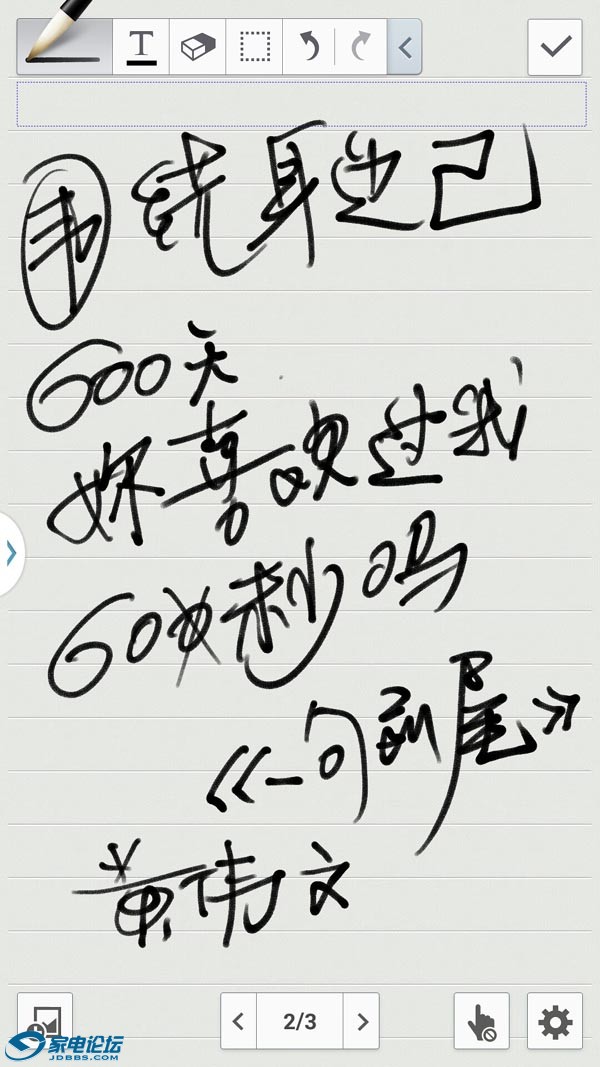 T
围绕身边已
600天
妳喜欢过我
60秒吗
《一句到尾》
黄伟文
2/3
家电论坛
JDBBS.COM